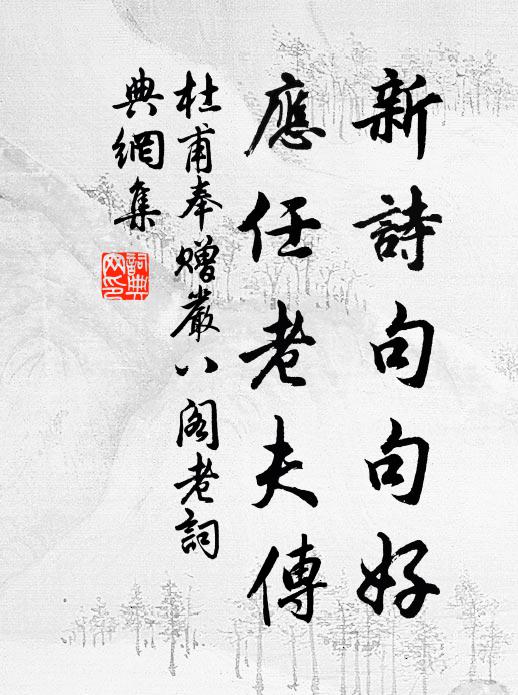 新詩句句好
應任老夫傳
杜甫奉贈嚴八閣老詞
典網集
詞典
网印